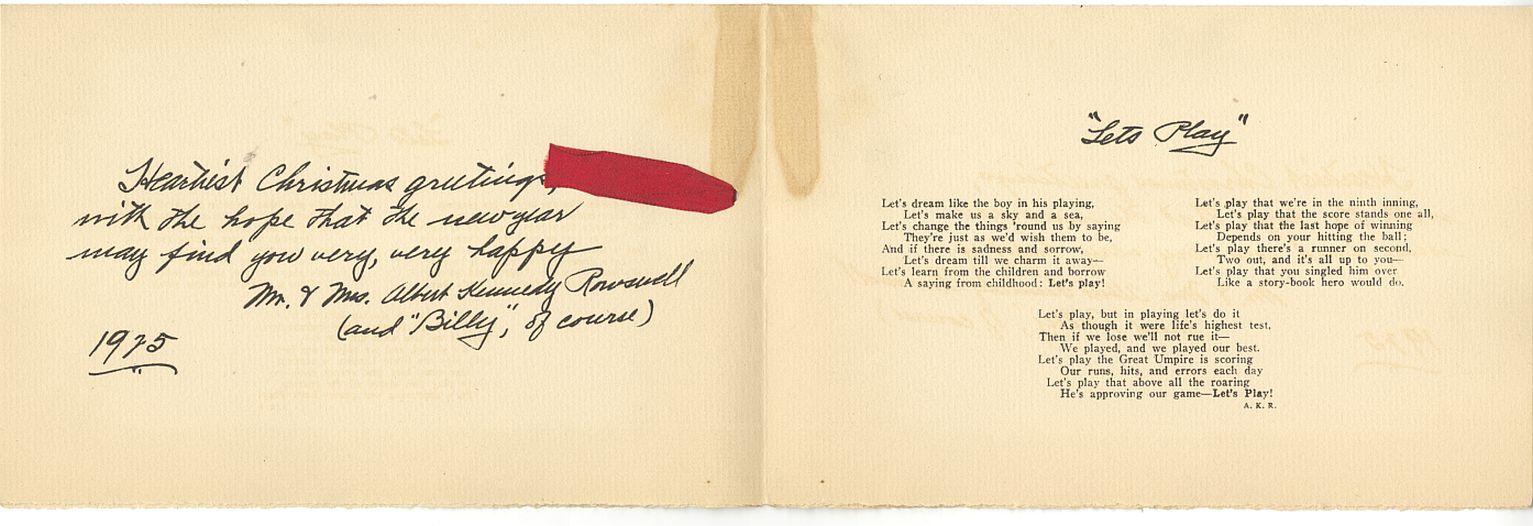 Heartiest Christmas greetings,
with the hope that the new year
may find you very, very happy
Mr. & Mrs. Albert Kennedy Rowswell
(and "Billy", of course)
1925
"Lets Play"
Let's dream like the boy in his playing,
Let's make us a sky and a sea,
Let's change the things 'round us by saying
They're just as we'd wish them to be,
And if there is sadness and sorrow,
Let's dream till we charm it away—
Let's learn from the children and borrow
A saying from childhood: Let's play!
Let's play that we're in the ninth inning,
Let's play that the score stands one all,
Let's play that the last hope of winning
Depends on your hitting the ball;
Let's play there's a runner on second,
Two out, and it's all up to you—
Let's play that you singled him over
Like a story-book hero would do.
Let's play, but in playing let's do it
As though it were life's highest test,
Then if we lose we'll not rue it—
We played, and we played our best.
Let's play the Great Umpire is scoring
Our runs, hits, and errors each day
Let's play that above all the roaring
He's approving our game—Let's Play!
A. K. R.